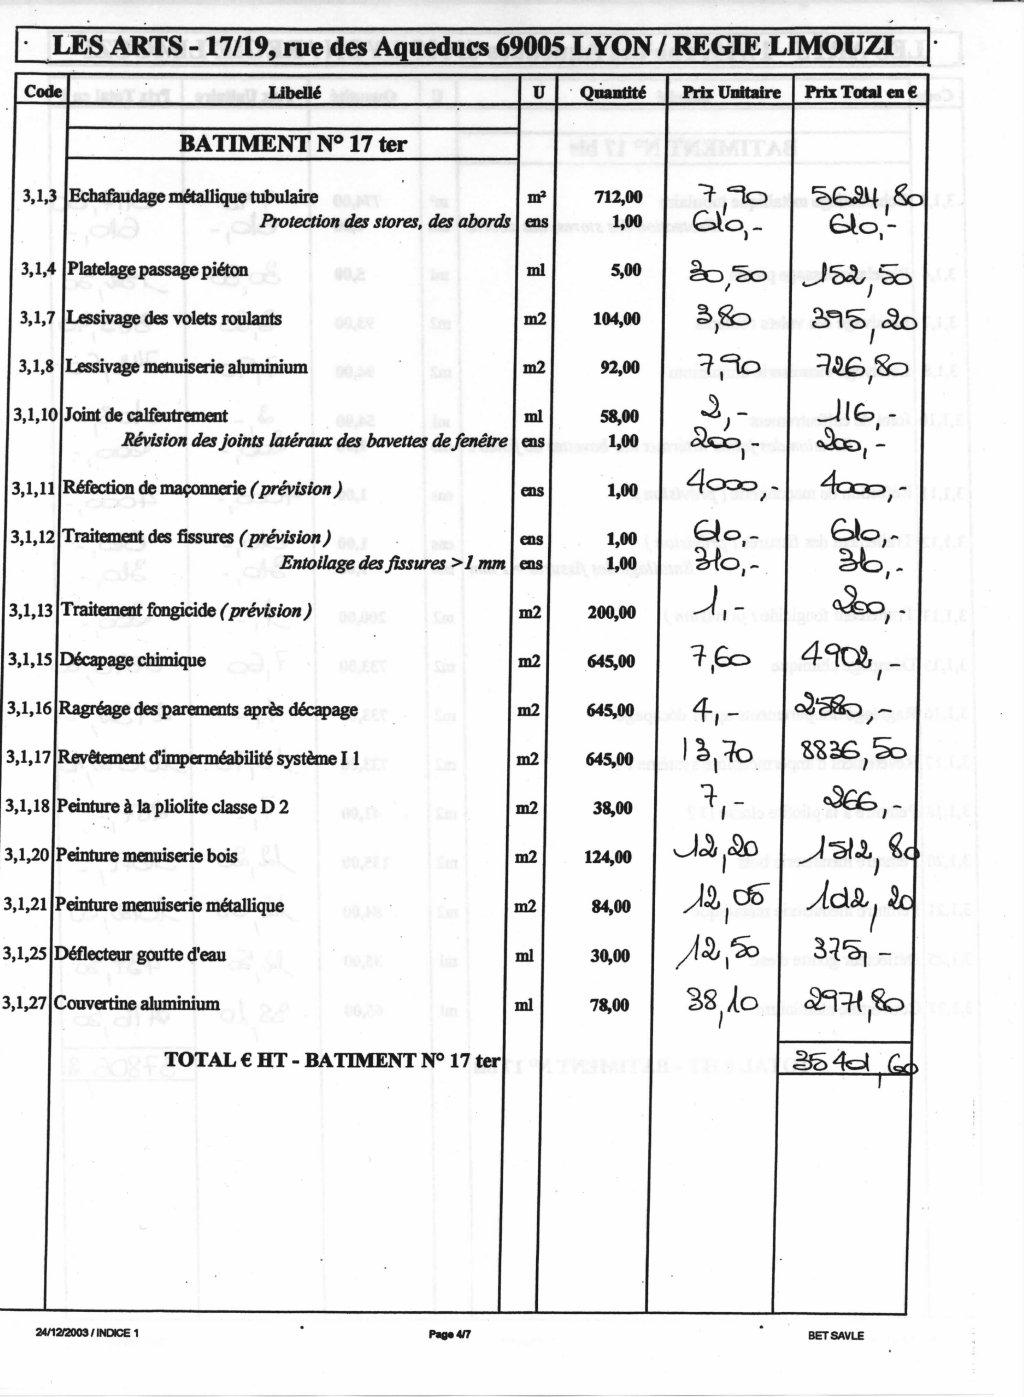 LES ARTS - 17/19, rue des Aqueducs 69005 LYON / REGIE LIMOUZI
Code Libellé U Quantité Prix Unitaire Prix Total en €
BATIMENT N° 17 ter
3,1,3 Echafaudage métallique tubulaire m² 712,00 7,90 5624,80
Protection des stores, des abords ens 1,00 610,- 610,-
3,1,4 Platelage passage piéton ml 5,00 30,50 152,50
3,1,7 Lessivage des volets roulants m2 104,00 3,80 395,20
3,1,8 Lessivage menuiserie aluminium m2 92,00 7,90 726,80
3,1,10 Joint de calfeutrement ml 58,00 2,- 116,-
Révision des joints latéraux des bavettes de fenêtre ens 1,00 200,- 200,-
3,1,11 Réfection de maçonnerie ( prévision ) ens 1,00 4000,- 4000,-
3,1,12 Traitement des fissures ( prévision ) ens 1,00 610,- 610,-
Entoilage des fissures > 1 mm ens 1,00 310,- 310,-
3,1,13 Traitement fongicide ( prévision ) m2 200,00 1,- 200,-
3,1,15 Décapage chimique m2 645,00 7,60 4902,-
3,1,16 Ragréage des parements après décapage m2 645,00 4,- 2580,-
3,1,17 Revêtement d'imperméabilité système I 1 m2 645,00 13,70 8836,50
3,1,18 Peinture à la pliolite classe D 2 m2 38,00 7,- 266,-
3,1,20 Peinture menuiserie bois m2 124,00 12,20 1512,80
3,1,21 Peinture menuiserie métallique m2 84,00 12,05 1012,20
3,1,25 Déflecteur goutte d'eau ml 30,00 12,50 375,-
3,1,27 Couvertine aluminium ml 78,00 38,10 2971,80
TOTAL € HT - BATIMENT N° 17 ter 35401,60
24/12/2003 / INDICE 1 Page 4/7 BET SAVLE